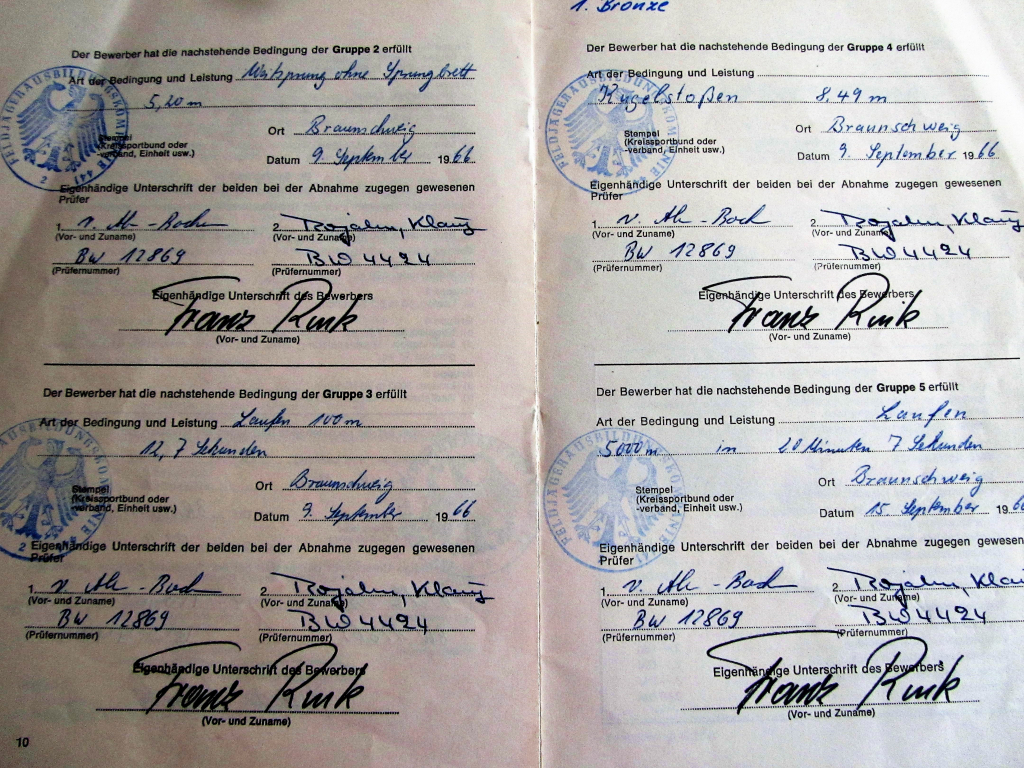 Der Bewerber hat die nachstehende Bedingung der Gruppe 2 erfüllt
Art der Bedingung und Leistung Weitsprung ohne Sprungbrett
5,20 m
FELDJÄGERAUSBILDUNGSKOMPANIE
Stempel
(Kreissportbund oder
-verband, Einheit usw.)
Ort Braunschweig
Datum 9. September 1966
Eigenhändige Unterschrift der beiden bei der Abnahme zugegen gewesenen
Prüfer
1. 2. Rojahn, Klaus
(Vor- und Zuname) (Vor- und Zuname)
BW 12869 BW 4424
(Prüfernummer) (Prüfernummer)
Eigenhändige Unterschrift des Bewerbers
Franz Rink
(Vor- und Zuname)
Der Bewerber hat die nachstehende Bedingung der Gruppe 3 erfüllt
Art der Bedingung und Leistung Laufen 100 m
12,7 Sekunden
Stempel
(Kreissportbund oder
-verband, Einheit usw.)
Ort Braunschweig
Datum 9. September 1966
Eigenhändige Unterschrift der beiden bei der Abnahme zugegen gewesenen
Prüfer
1. 2. Rojahn, Klaus
(Vor- und Zuname) (Vor- und Zuname)
BW 12869 BW 4424
(Prüfernummer) (Prüfernummer)
Eigenhändige Unterschrift des Bewerbers
Franz Rink
(Vor- und Zuname)
10
1. Bronze
Der Bewerber hat die nachstehende Bedingung der Gruppe 4 erfüllt
Art der Bedingung und Leistung
Kugelstoßen 8,49 m
FELDJÄGERAUSBILDUNGSKOMPANIE
Stempel
(Kreissportbund oder
-verband, Einheit usw.)
Ort Braunschweig
Datum 9. September 1966
Eigenhändige Unterschrift der beiden bei der Abnahme zugegen gewesenen
Prüfer
1. 2. Rojahn, Klaus
(Vor- und Zuname) (Vor- und Zuname)
BW 12869 BW 4424
(Prüfernummer) (Prüfernummer)
Eigenhändige Unterschrift des Bewerbers
Franz Rink
(Vor- und Zuname)
Der Bewerber hat die nachstehende Bedingung der Gruppe 5 erfüllt
Art der Bedingung und Leistung Laufen
5000 m in 20 Minuten 7 Sekunden
Stempel
(Kreissportbund oder
-verband, Einheit usw.)
Ort Braunschweig
Datum 15. September 1966
Eigenhändige Unterschrift der beiden bei der Abnahme zugegen gewesenen
Prüfer
1. 2. Rojahn, Klaus
(Vor- und Zuname) (Vor- und Zuname)
BW 12869 BW 4424
(Prüfernummer) (Prüfernummer)
Eigenhändige Unterschrift des Bewerbers
Franz Rink
(Vor- und Zuname)